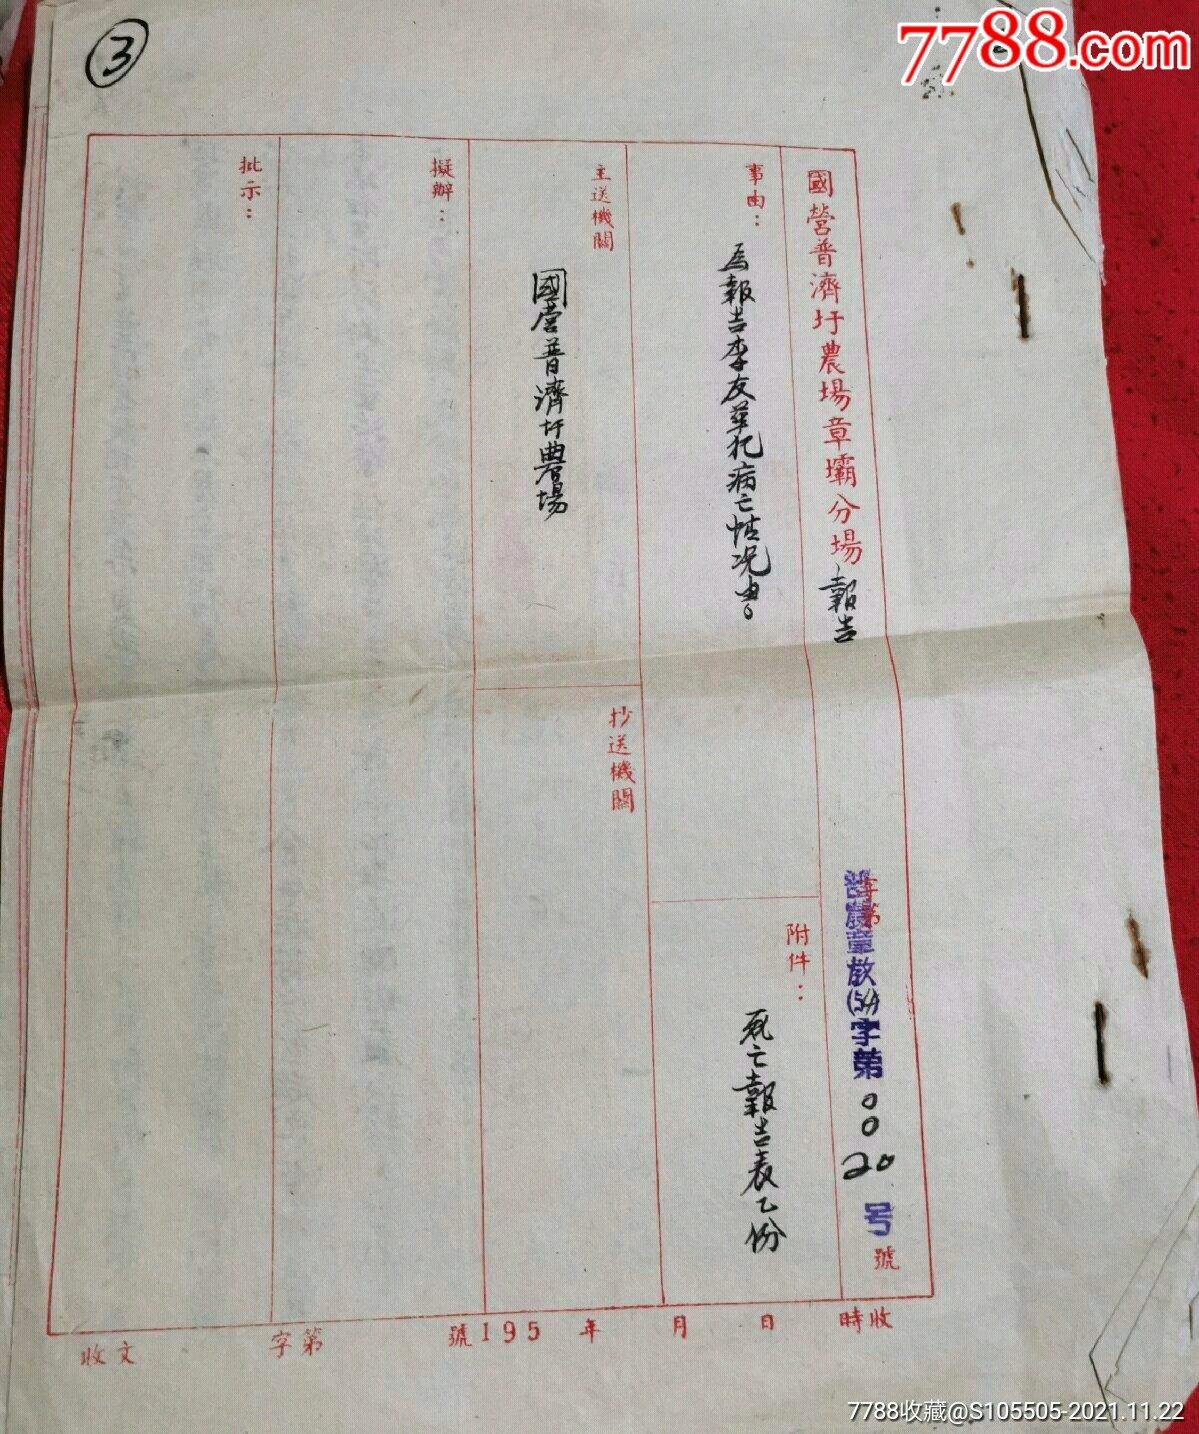 ③
7788.com
國營普濟圩農場章壩分場報告
字第
普農章教(54)字第0020号
號
事由：
為報告李友華犯病亡情况由。
附件：
死亡報告表乙份
主送機關
國营普濟圩農場
抄送機關
擬辦：
批示：
收文 字第 號 195 年 月 日 時收
7788收藏@S105505-2021.11.22